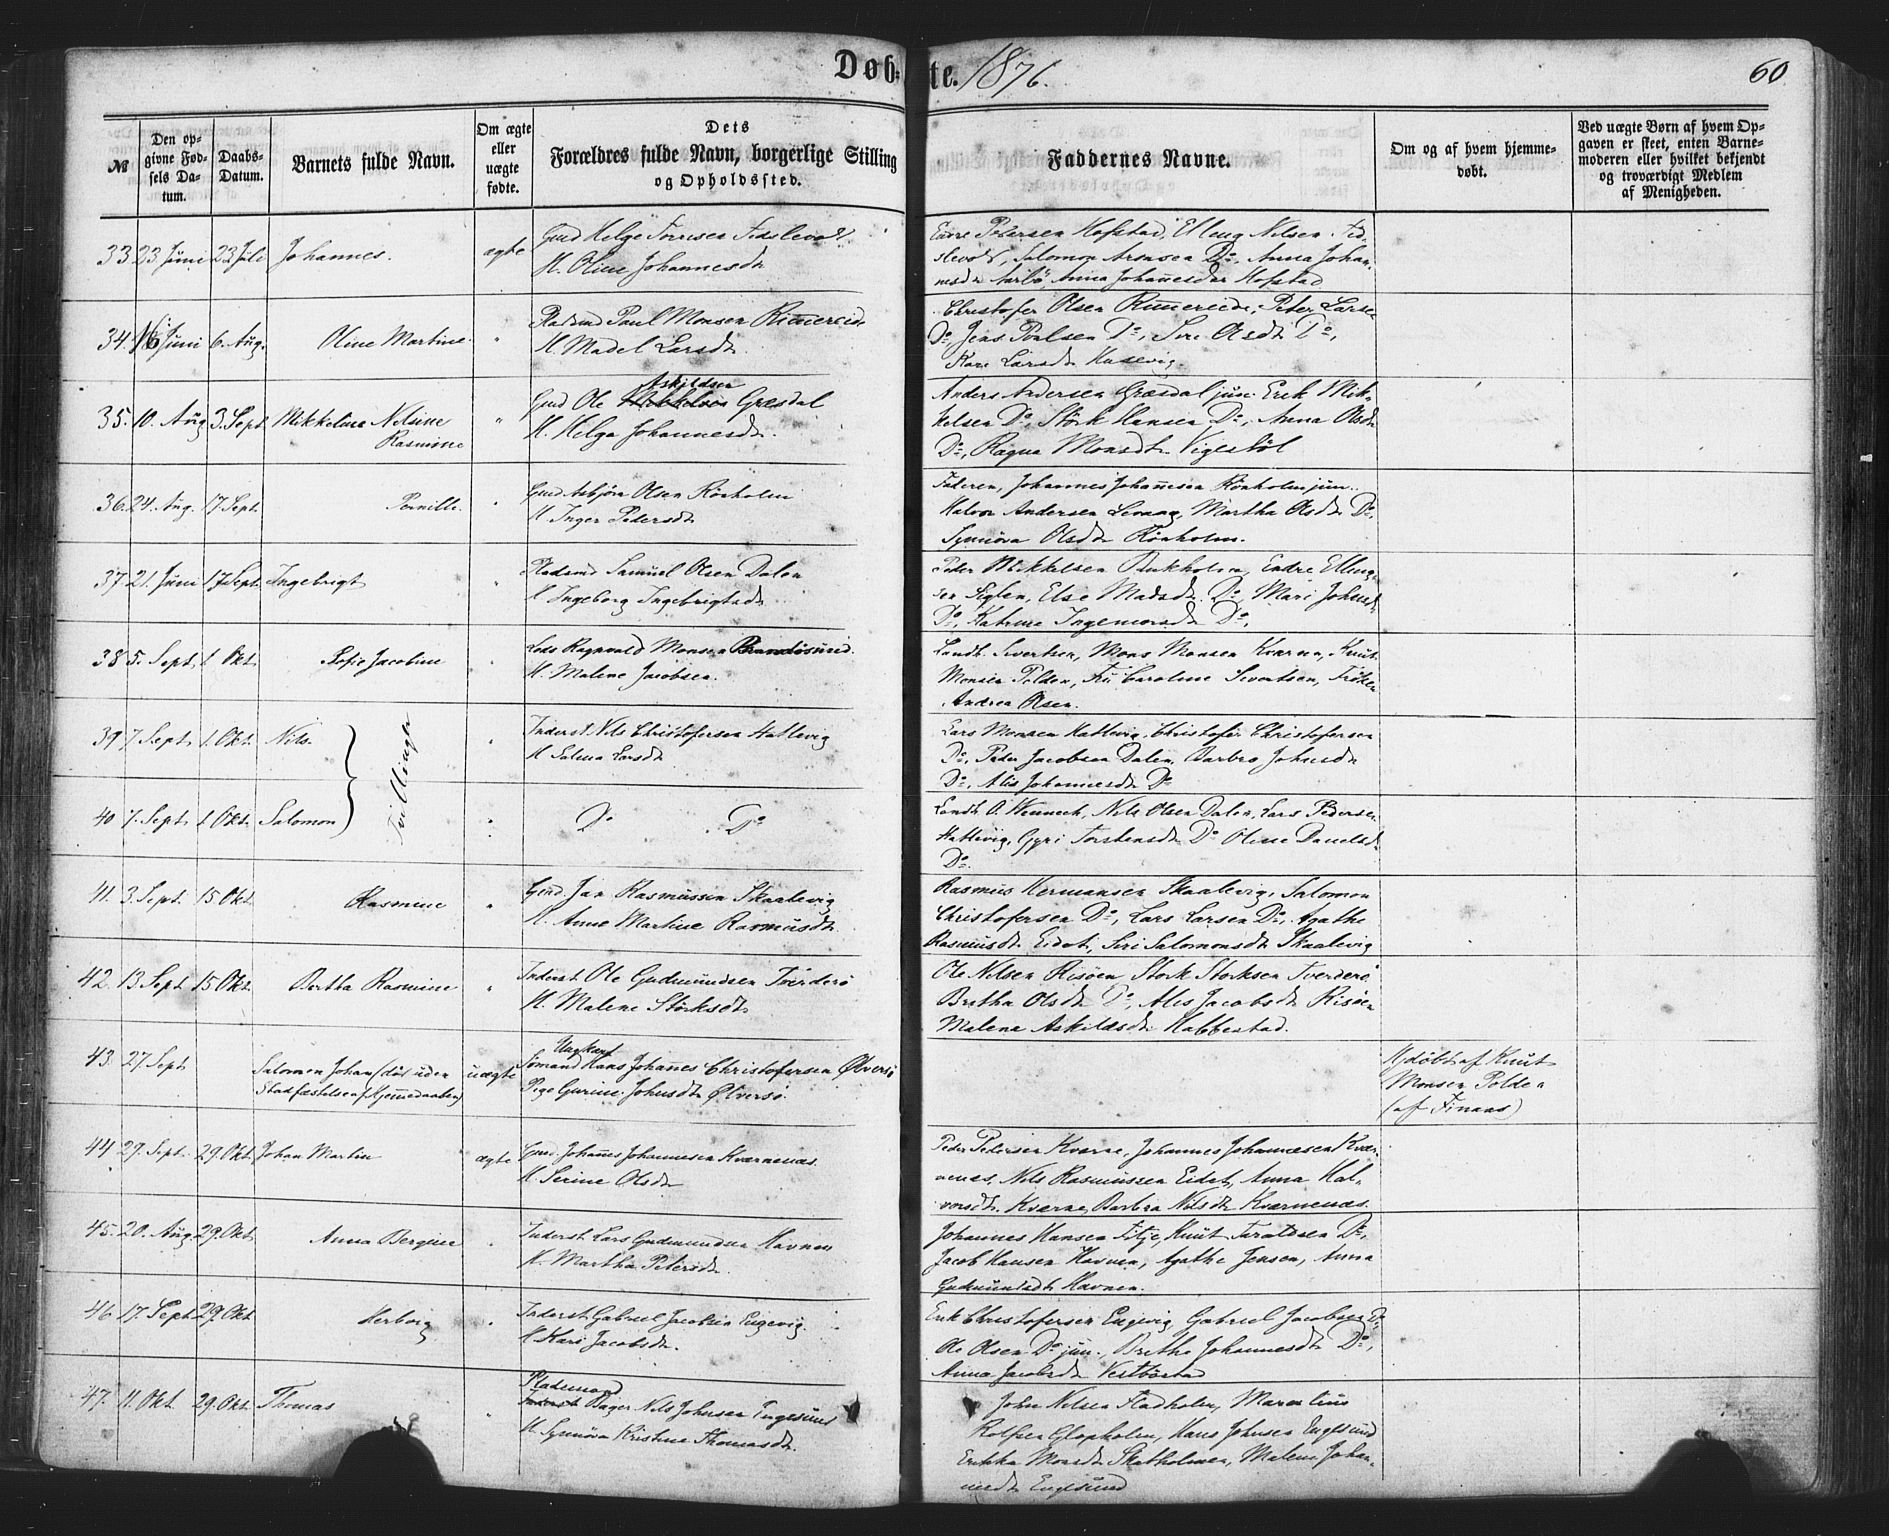 Døb-
te. 1876.
60.
№
Den op-
givne Fød-
sels Da-
tum.
Daabs-
Datum.
Barnets fulde Navn.
Om ægte
eller
uægte
fødte.
Dets
Forældres fulde Navn, borgerlige Stilling
og Opholdssted.
Faddernes Navne.
Om og af hvem hjemme-
døbt.
Ved uægte Børn af hvem Op-
gaven er skeet, enten Barne-
moderen eller hvilket bekjendt
og troværdigt Medlem
af Menigheden.
33 23 Juni 23 Juli Johannes. ægte
Gmd Helge
H. Oline Johannesdt
Endre Petersen Hofstad, Elling Nilsen
Salomon Arensen Do, Anna Johan-
nesdt Anna Johannesdt Hofstad
34. 16 Juni 6. Aug. Oline Martine "
Pladsmd Paul Monsen Rimereide
H. Madel Larsdt.
Christofer Olsen Rimereide, Peter Larsen
Do, Jens Poulsen Do, Siri Olsdt Do,
Kari Larsdt Husevig.
35. 10. Aug 3. Sept Mikkeline Nelsine
Rasmine "
Askildsen
Gmd Ole Græsdal
H. Helga Johannesdt.
Anders Andersen Græsdal jun. Erik Mik-
kelsen Do, Stork Hansen Do, Anna Olsdt
Do, Ragna Monsdt. Vigestøl
36. 24. Aug. 17. Sept. Pernille. "
Gmd Asbjørn Olsen Rönholm
H Inger Pedersdt
Faderen, Johannes Johannesen Rönholm jun.
Halvor Andersen Martha Olsdt Do,
Synnöva Olsdt Rönholm.
37. 21. Juni 17. Sept. Ingebrigt "
Pladsmd Samuel Olsen Dalen
H Ingeborg Ingebrigtsdt
Peder Mikkelsen Endre Elling-
sen Else Madsdt. Do, Mari Johnsdt
Do, Katrine Do,
38 5. Sept. 1 Okt. Sofie Jacobine "
Lods Ragnvald Monsen Brandösund.
H. Malene Jacobsen.
Landh. Sivertsen, Mons Monsen Kværne, Knut
Monsen Polden, Fru Caroline Sivertsen, Frøken
Andrea Olsen.
39 7 Sept. 1. Okt. Nils. "
Tvillinger
Inderst Nils Christofersen Hattevig
H Larsdt
Lars Monsen Hattevig, Christofer Christofersen
Do, Peder Jacobsen Dalen, Barbro Johnsdt
Do, Alis Johannesdt Do
40 7. Sept. 1 Okt. Salomon "
Do Do
Landh. O. Nils Olsen Dalen, Lars Pedersen
Hattevig, Gyri Torstensdt Do Oline Danielsdt
Do.
41. 3. Sept. 15 Okt. Rasmine "
Gmd. Jan Rasmussen Skaalevig
H. Anne Martine Rasmusdt
Rasmus Hermansen Skaalevig, Salomon
Christofersen Do, Lars Larsen Do, Agathe
Rasmusdt Eidet, Siri Salomonsdt Skaalevig
42. 13. Sept 15 Okt. Bertha Rasmine "
Inderst Ole Gudmundsen Tverderö
H. Malene Störksdt
Ole Nilsen Risöen Störk Störksen Tverderö
Bretha Olsdt Do, Alis Jacobsdt Risöen
Malena Askildsdt Habbestad.
43. 27. Sept Salomon Johan (död uden
Stadfæstelsen af Hjemmedaaben) uægte
Ungkarl
Sömand Hans Johannes Christofersen Ølversö
Pige Gurine Johnsdt Ølversö.
Hjdöbt af Knut
Monsen Polden
(af Finaas)
44 29. Sept. 29 Okt. Johan Martin ægte
Gmd. Johannes Johannesen Kværnenes.
H. Serine Olsdt
Peder Pedersen Kværne, Johannes Johannesen Kvær-
nenes, Nils Rasmussen Eidet, Anna Hal-
vorsdt. Kværne, Barbra Nilsdt Kværnenæs.
45. 20. Aug 29. Okt. Anna Bergine "
Inderst Lars Gudmundsen Havnen
H. Martha Petersdt
Johannes Hansen Fitje, Knut Do,
Jacob Hansen Havnen, Agathe Jensen, Anna
Gudmundsdt Havnen.
46 17. Sept 29. Okt Herborg "
Inderst Gabriel Jacobsen Engevig.
H Kari Jacobsdt.
Erik Christofersen Engevig, Gabriel Jacobsen Do
Ole Olsen Do jun., Bretha Johannesdt Do,
Anna Jacobsdt Vestbøstad
47. 11. Okt. 29. Okt. Thomas "
Pladsmand
Nils Johnsen Engesund
H. Synnöva Kristine Thomasdt.
John Nilsen Fladholm, Marentius
Rolfsen Glopholm, Hans Johnsen Englsund
Erikka Monsdt Skatholmen, Malene Johan-
nesdt Englsund